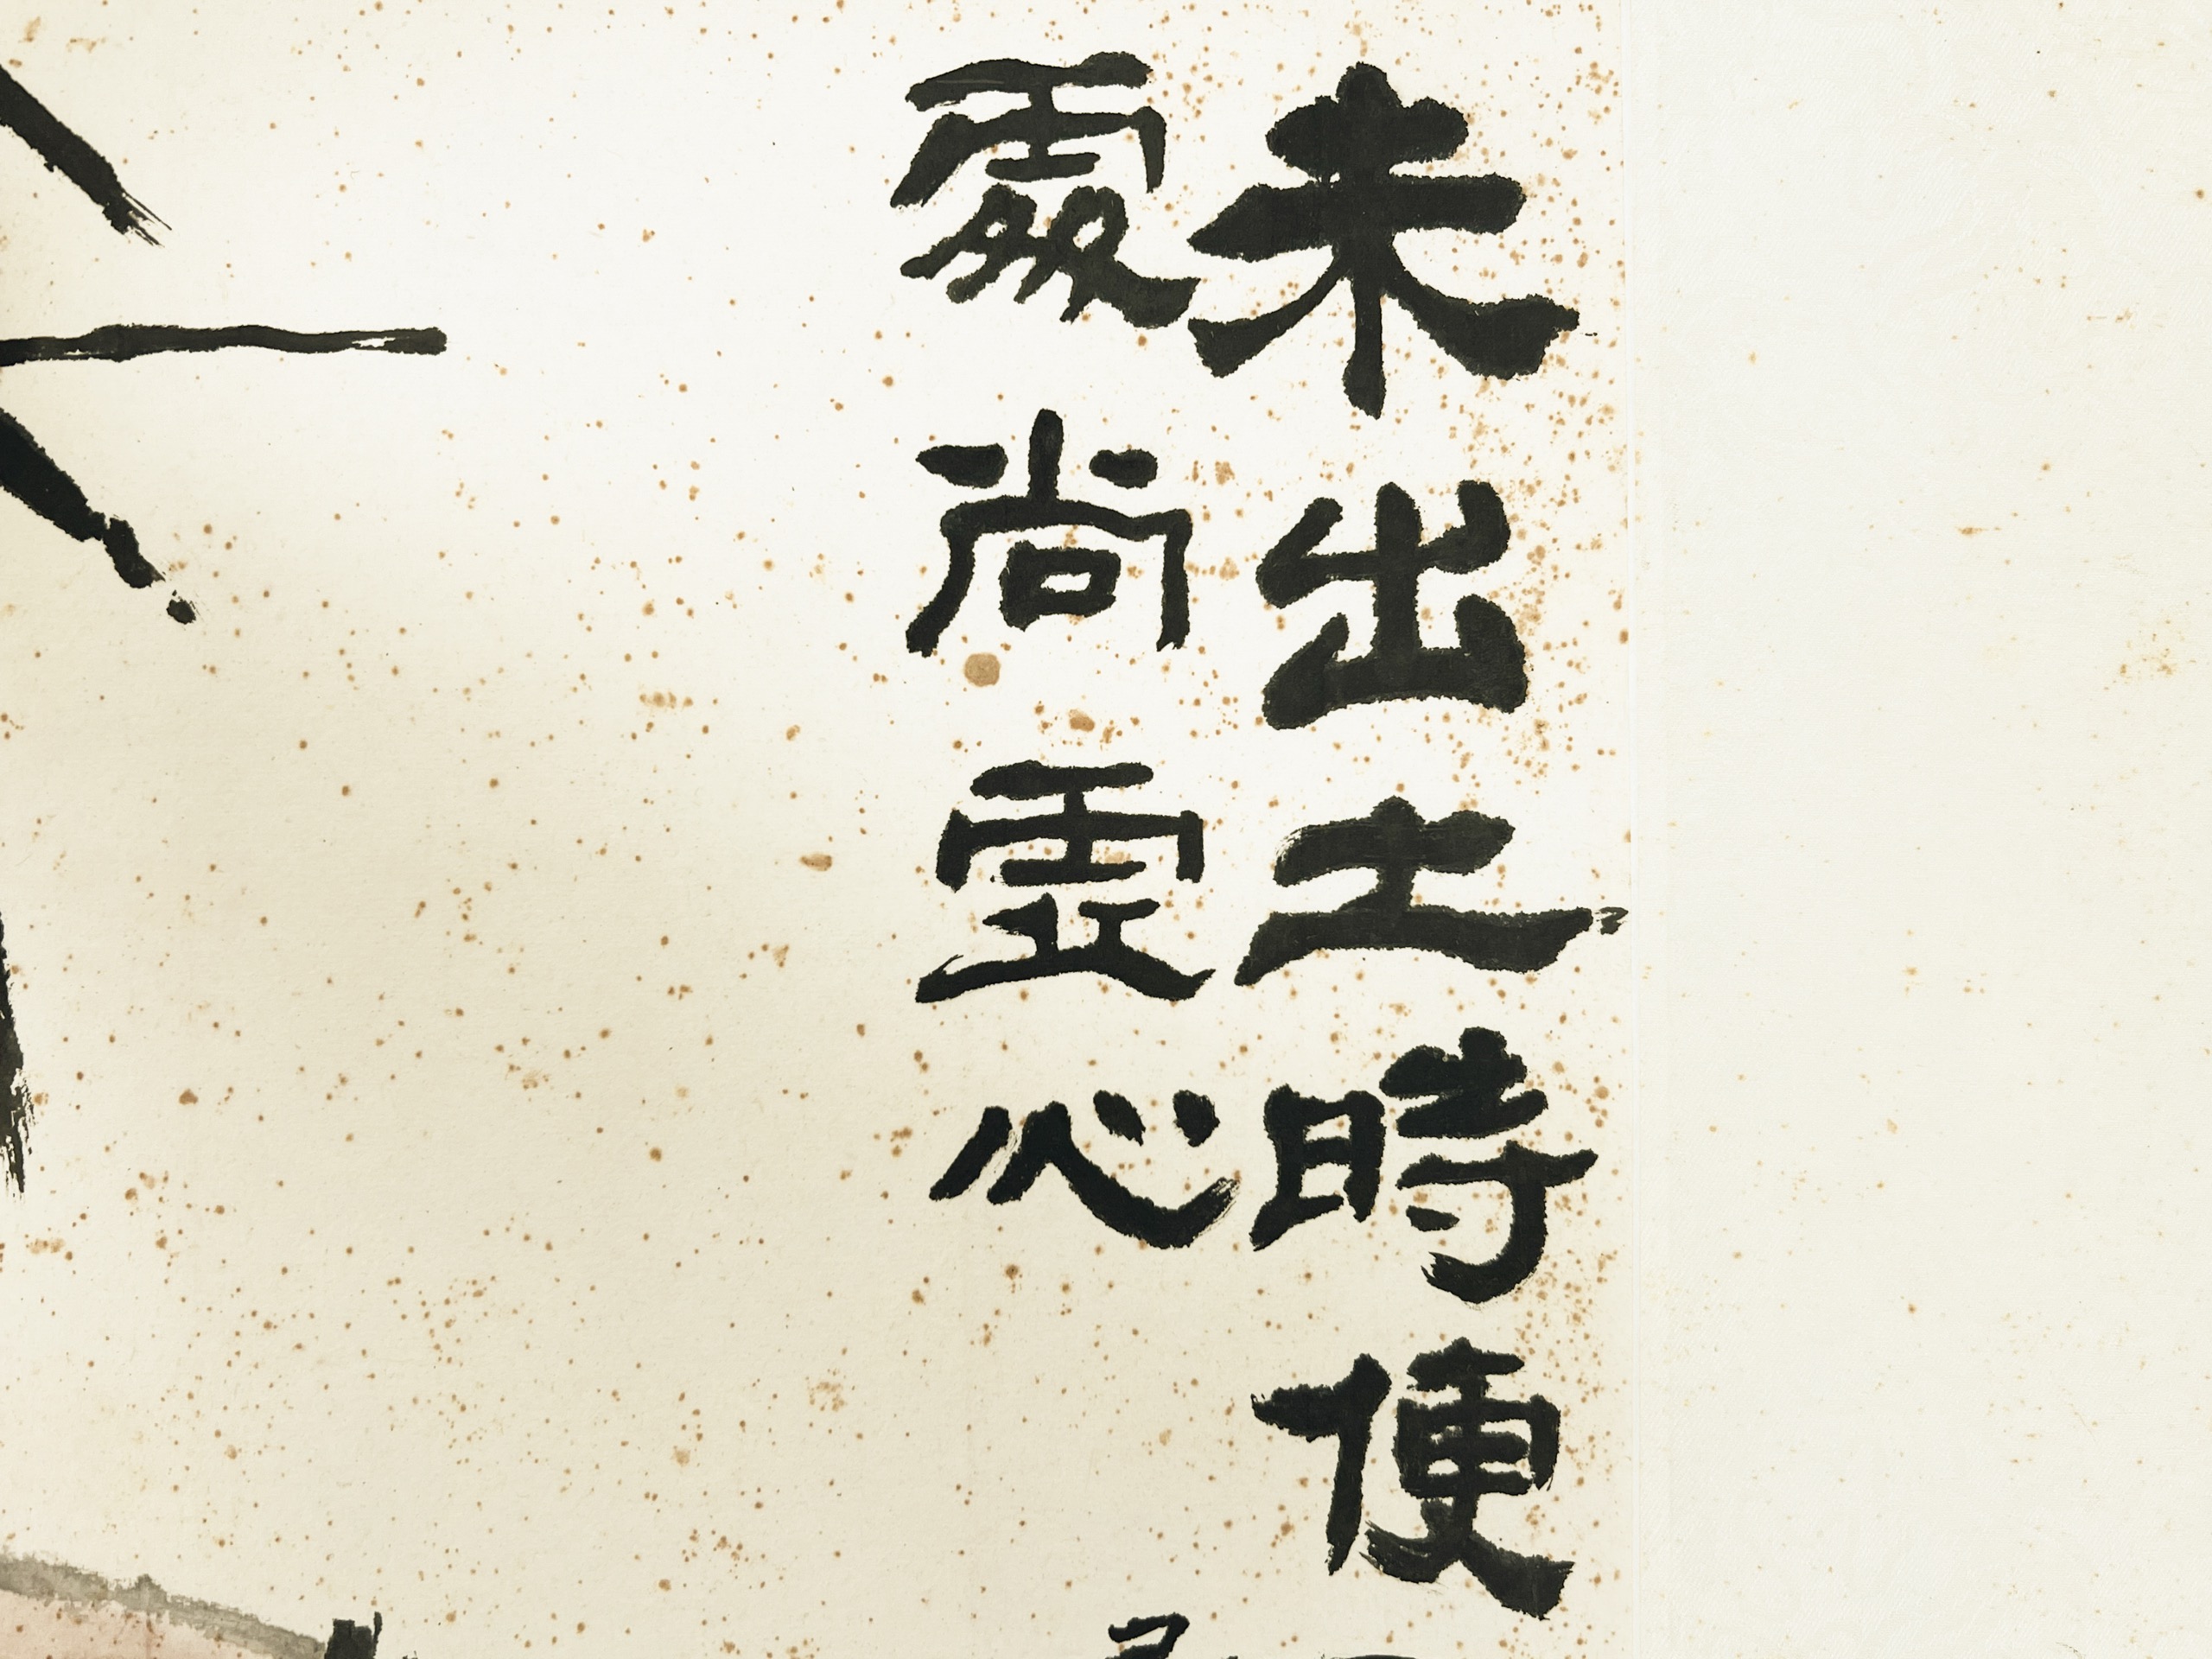 未出土時便
處尚虛心